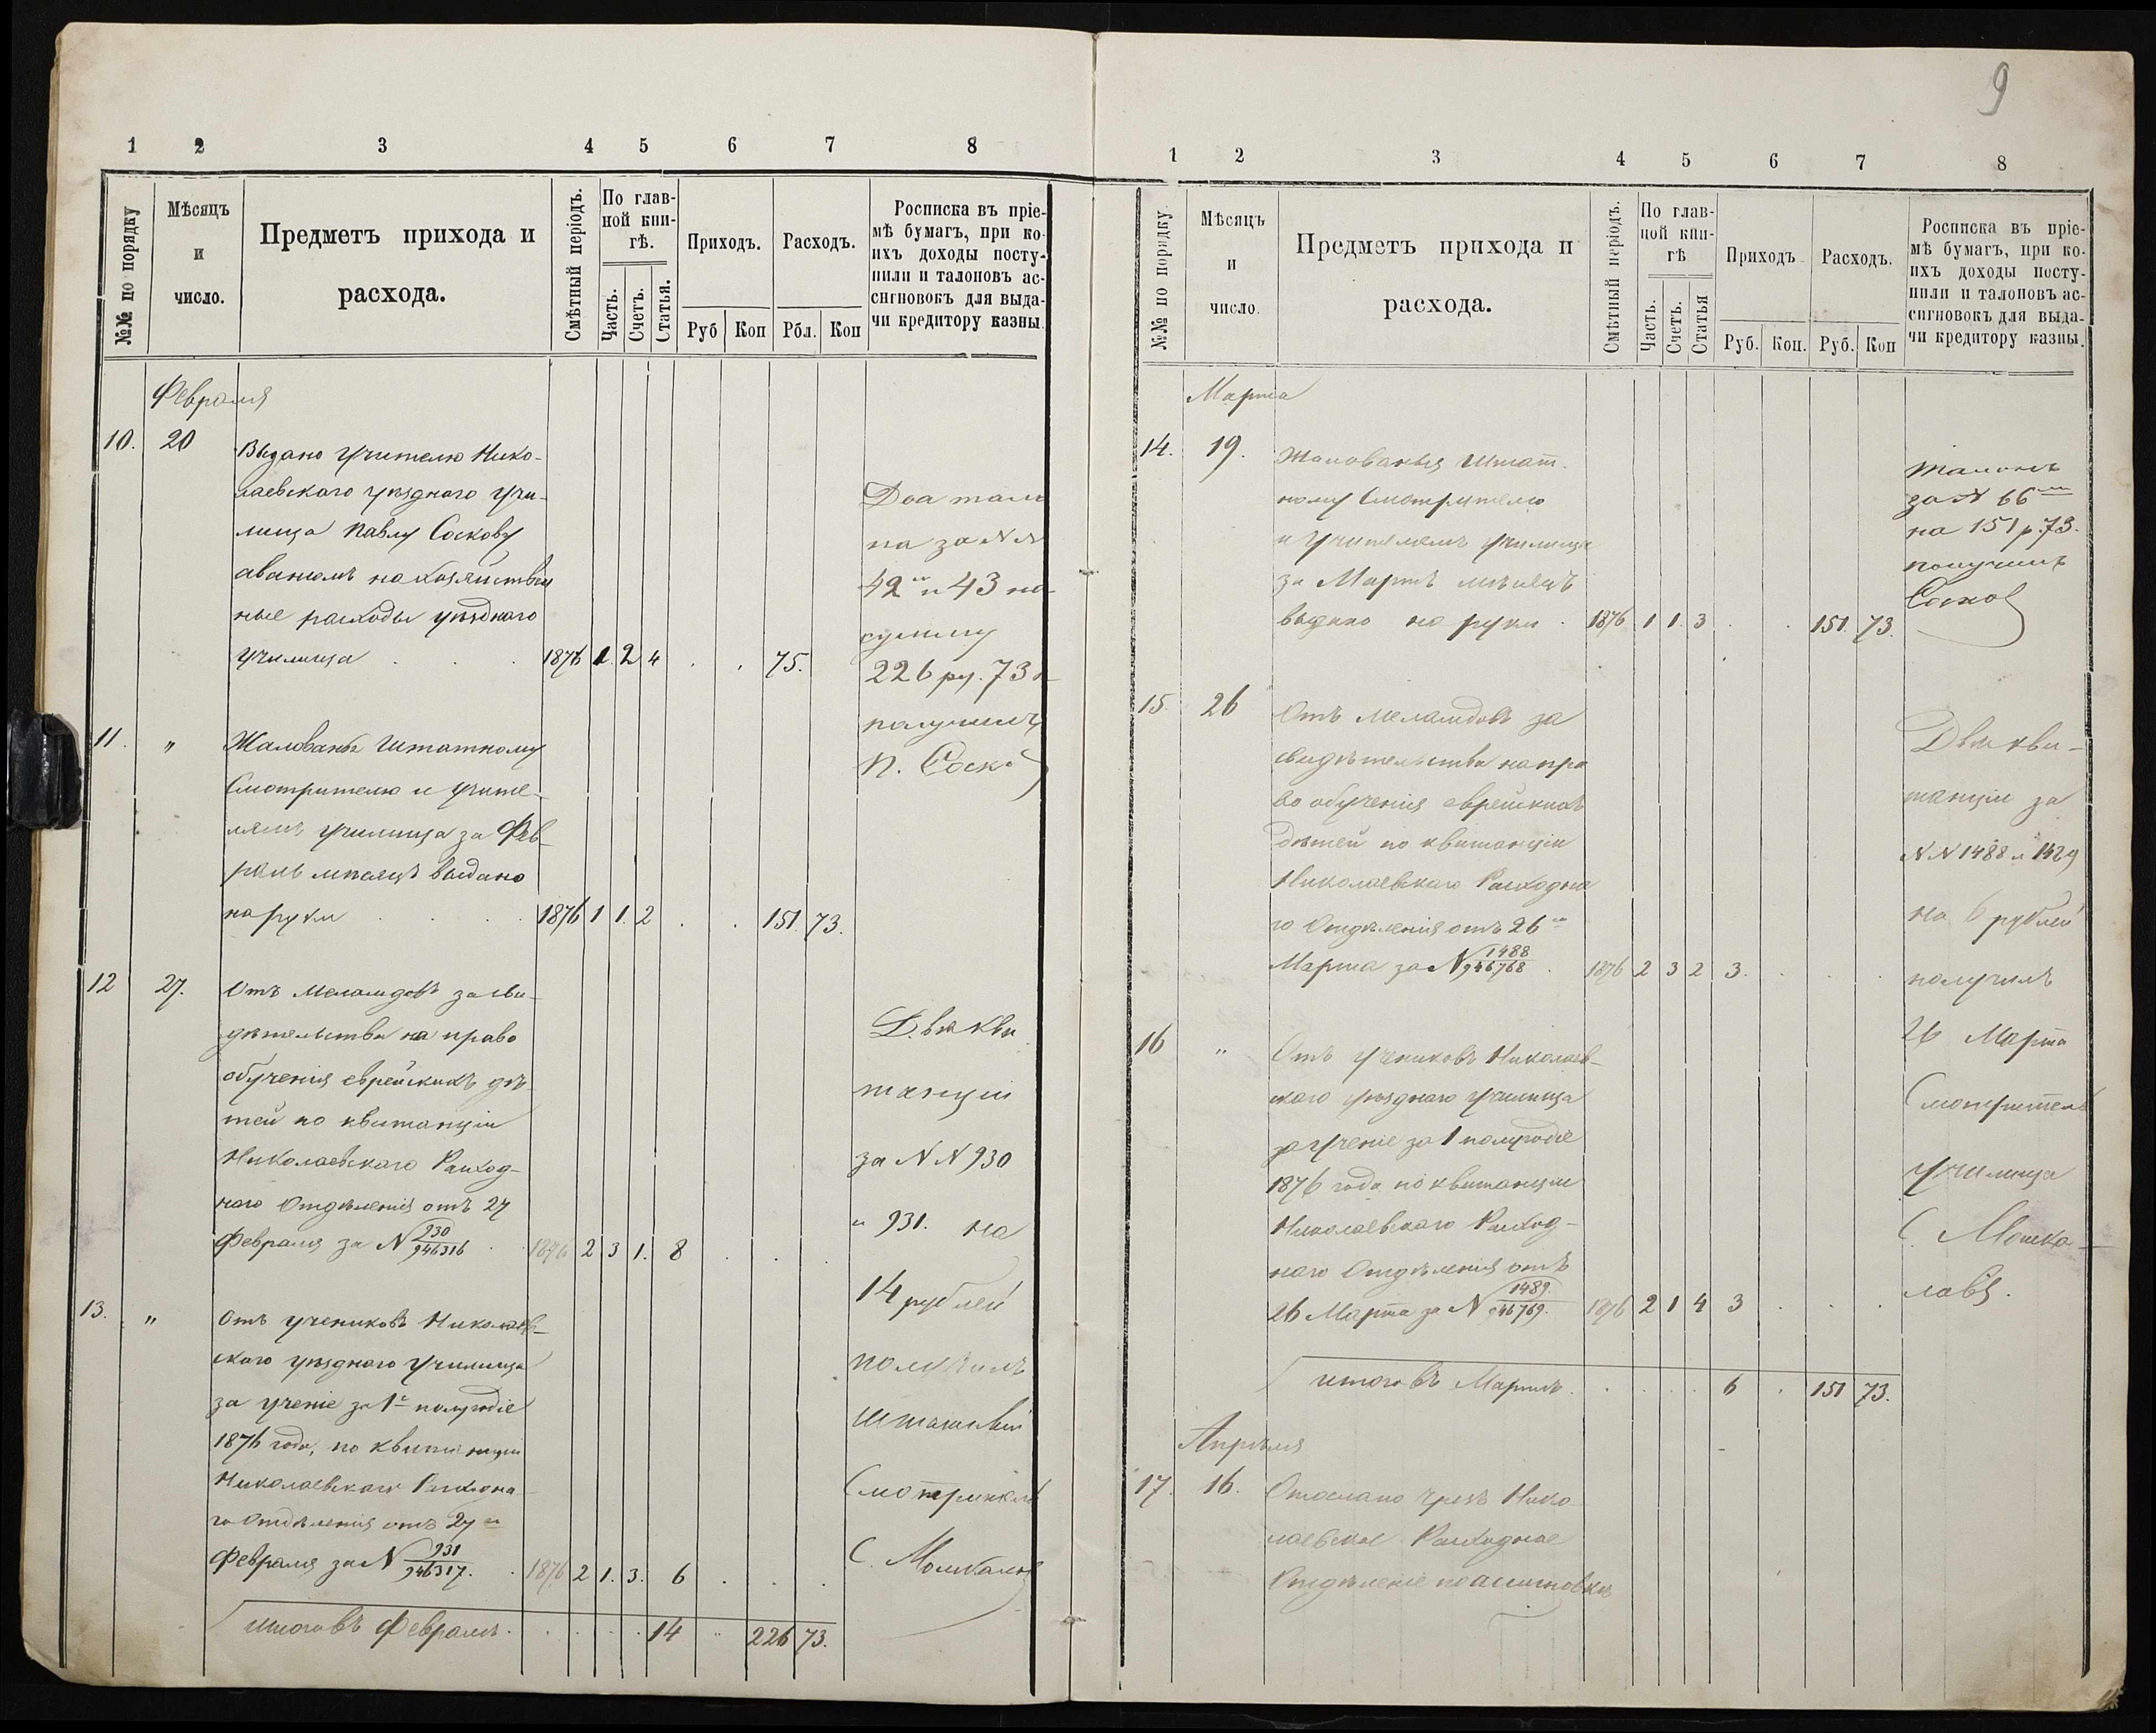 1 2 3 4 5 6 7 8
№№ по порядку
Мѣсяцъ
и
число.
Предметъ прихода и
расхода.
Смѣтный періодъ.
По глав-
ной кни-
гѣ.
Часть.
Счетъ.
Статья.
Приходъ.
Руб Коп
Расходъ.
Рбл. Коп
Росписка въ пріе-
мѣ бумагъ, при ко-
ихъ доходы посту-
пили и талоновъ ас-
сигновокъ для выда-
чи кредитору казны.
Февраля
10. 20 Выдано Учителю Нико-
лаевскаго уѣзднаго Учи-
лища Павлу Соскову
авансомъ на хозяйствен
ные расходы уѣзднаго
училища . . . 1876 1. 2 4 . . 75.
Два тало
на за №№
42 и 43 на
сумму
226 ру. 73 к
получилъ
П. Соско
11. " Жалованье Штатному
Смотрителю и Учите-
лямъ Училища за Фев-
раль мѣсяцъ выдано
на руки . . . 1876 1 1. 2 . . 151 73.
12 27. Отъ Меламдовъ за сви-
дѣтельства на право
обученія еврейскихъ дѣ-
тей по квитанціи
Николаевскаго Расход-
наго Отдѣленія отъ 27
Февраля за № 930/946316 . 1876 2 3 1. 8 . . .
Двѣ кви
танціи
за №№ 930
и 931. на
14 рублей
получилъ
Штатный
Смотритель
С. Мошкало
13. " Отъ учениковъ Николаев-
скаго уѣзднаго Училища
за ученіе за 1е полугодіе
1876 года, по квитанціи
Николаевскаго Расходна-
го Отдѣленія отъ 27 го
Февраля за № 931/946317. . 1876 2 1. 3. 6 . . .
Итого въ Февралѣ. . . . . . 14 " 226 73.
9
1 2 3 4 5 6 7 8
№№ по порядку.
Мѣсяцъ
и
число.
Предметъ прихода и
расхода.
Смѣтный періодъ.
По глав-
ной кни-
гѣ
Часть.
Счетъ.
Статья
Приходъ
Руб. Коп.
Расходъ.
Руб. Коп
Росписка въ пріе-
мѣ бумагъ, при ко-
ихъ доходы посту-
пили и талоновъ ас-
сигновокъ для выда-
чи кредитору казны.
Марта
14. 19. Жалованья Штат-
ному Смотрителю
и Учителямъ Училища
за Мартъ мѣсяцъ
выдано на руки . 1876 1 1. 3 . . 151. 73.
Талонъ
за № 66
на 151 р. 73.
получилъ
Сосков
15. 26 Отъ меламдовъ за
свидѣтельства на пра
во обученія еврейскихъ
дѣтей по квитанціи
Николаевскаго Расходна
го Отдѣленія отъ 26 го
Марта за № 1488/946768 . 1876 2 3 2 3. . . .
Двѣ кви-
танціи за
№№ 1488 и 1489
на 6 рублей
получилъ
26 Марта
Смотритель
Училища
С. Мошка-
ловъ.
16 " Отъ учениковъ Николаев-
скаго уѣзднаго Училища
за ученіе за 1 полугодіе
1876 года по квитанціи
Николаевскаго Расход-
наго Отдѣленія отъ
26 Марта за № 1489./946769. 1876 2 1 4 3 . . .
Итого въ Мартѣ. . . . . 6 . 151 73.
Апрѣля
17. 16. Отослано чрезъ Нико
лаевское Расходное
Отдѣленіе по ассигновкѣ